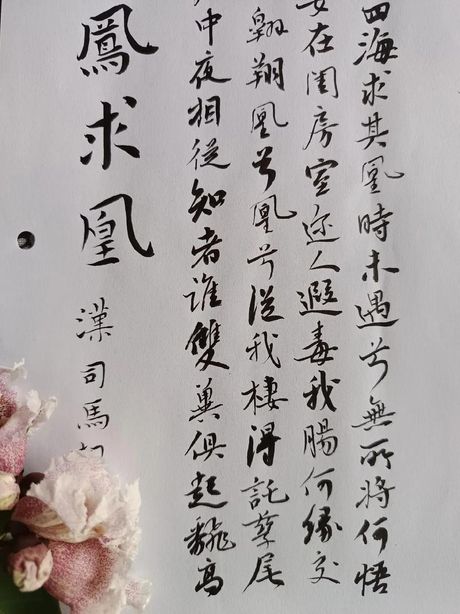 四海求其凰時未遇兮無所將何悟
女在閨房室迩人遐毒我腸何緣交
翱翔凰兮凰兮從我棲得託孳尾
中夜相從知者誰雙翼俱起翻高
鳳求凰
漢司馬